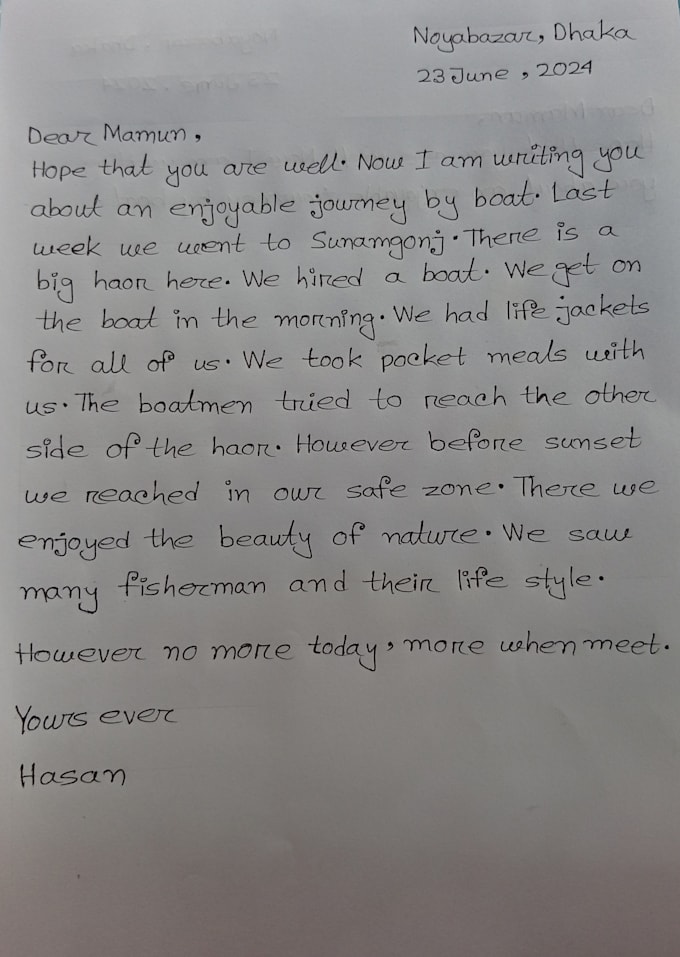 Noyabazar, Dhaka
23 June, 2024
Dear Mamun,
Hope that you are well. Now I am writing you
about an enjoyable journey by boat. Last
week we went to Sunamgonj. There is a
big haor here. We hired a boat. We get on
the boat in the morning. We had life jackets
for all of us. We took pocket meals with
us. The boatmen tried to reach the other
side of the haor. However before sunset
we reached in our safe zone. There we
enjoyed the beauty of nature. We saw
many fisherman and their life style.
However no more today, more when meet.
Yours ever
Hasan